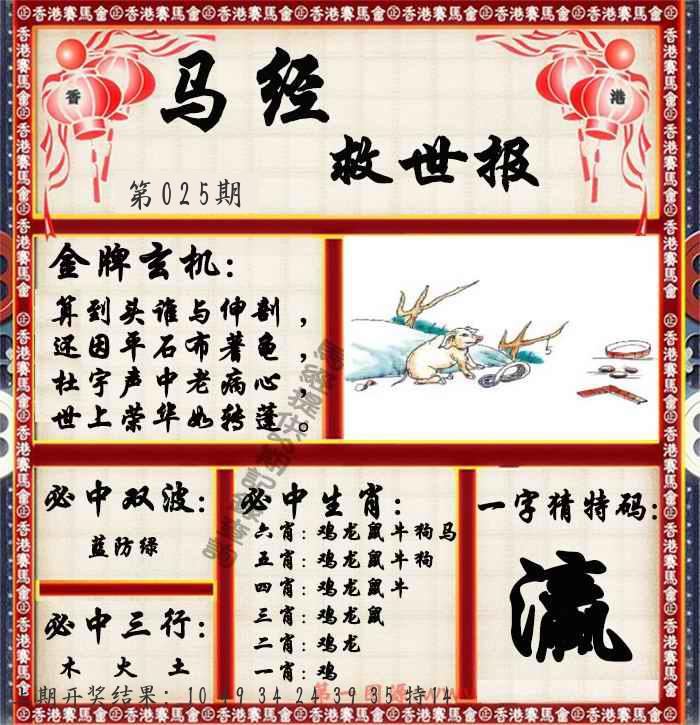 香港賽馬會
香 港
马经
救世报
第025期
金牌玄机：
算到头谁与伸剖，
还因平石布著龟，
杜宇声中老病心，
世上荣华如转蓬。
必中双波：
蓝防绿
必中三行：
木 火 土
必中生肖：
六肖：鸡龙鼠牛狗马
五肖：鸡龙鼠牛狗
四肖：鸡龙鼠牛
三肖：鸡龙鼠
二肖：鸡龙
一肖：鸡
一字猜特码：
瀛
期开奖结果：10 49 34 24 39 35 特14